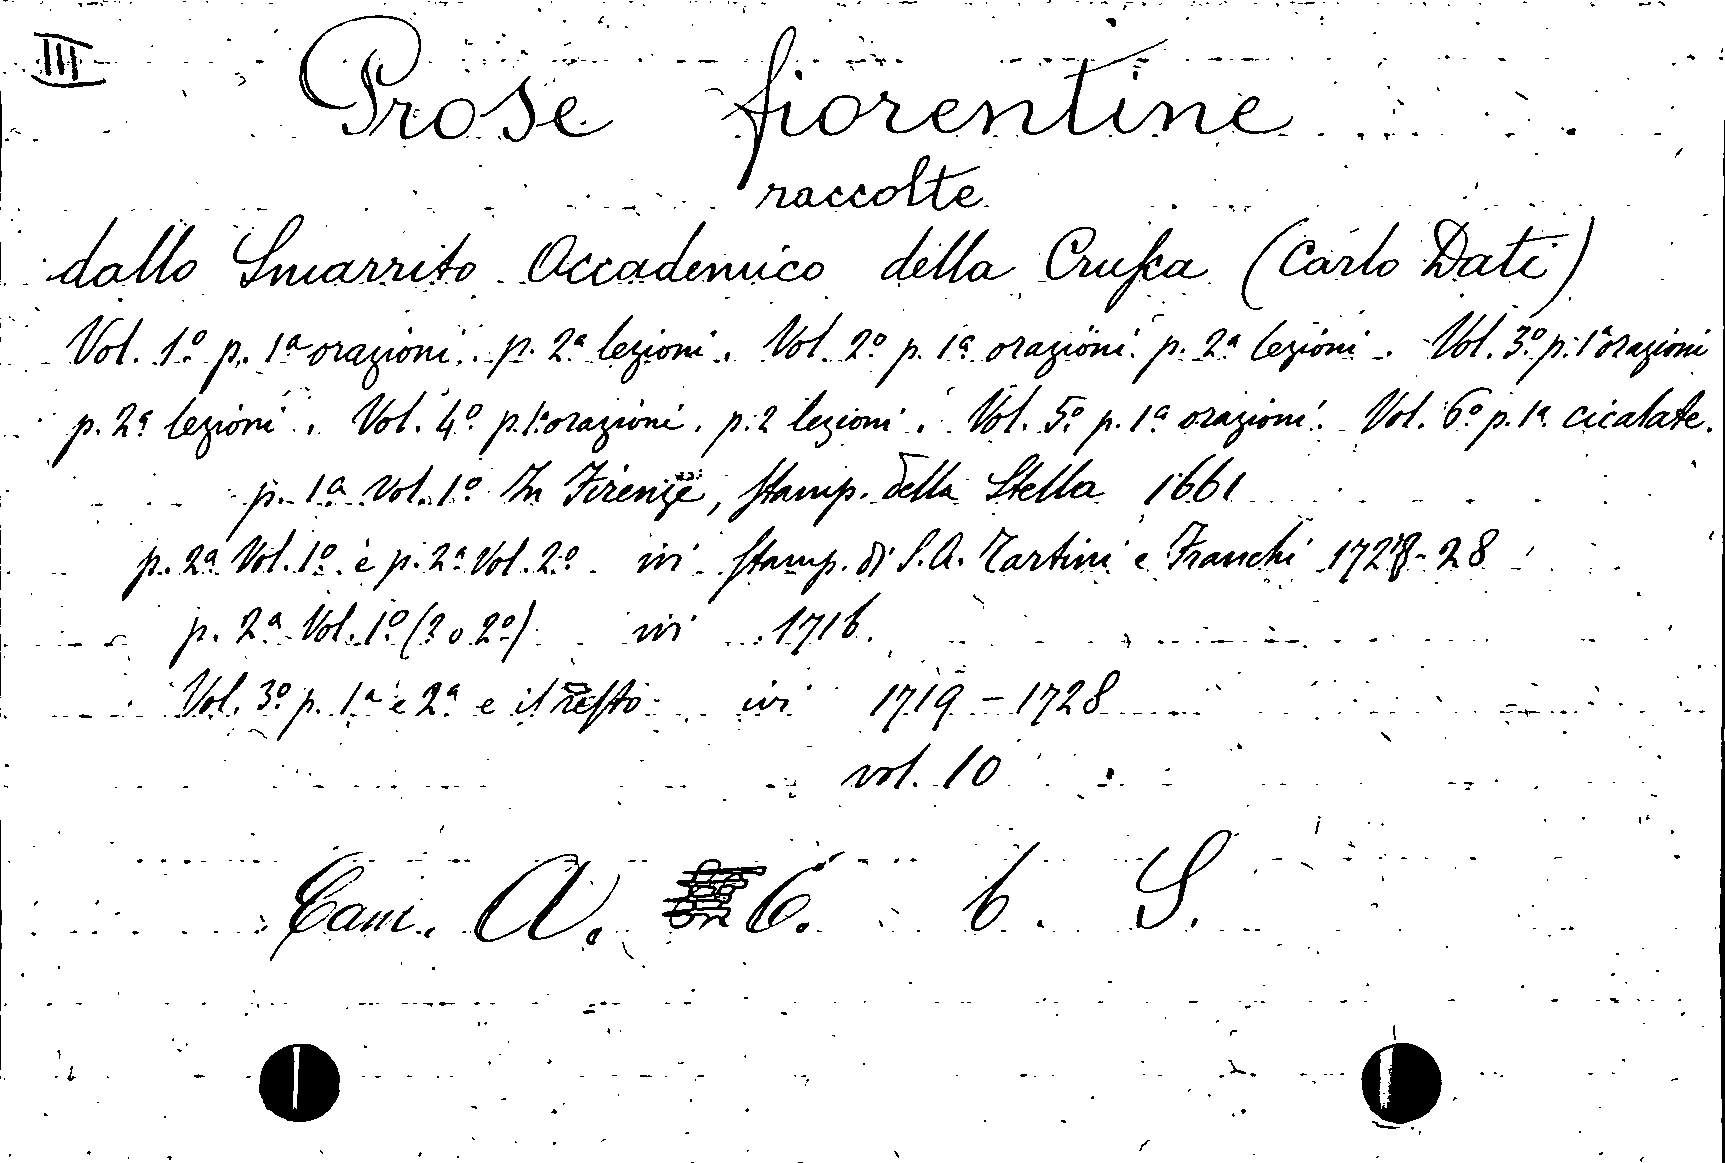 III
Prose fiorentine
raccolte
dallo Smarrito Accademico della Crusca (Carlo Dati)
Vol. 1º p. 1ª orazioni. p. 2ª lezioni. Vol. 2º p. 1ª orazioni. p. 2ª lezioni. Vol. 3º p. 1ª orazioni
p. 2ª lezioni. Vol. 4º p. 1ª orazioni. p. 2 lezioni. Vol. 5º p. 1ª orazioni. Vol. 6º p. 1ª cicalate.
p. 1ª Vol. 1º In Firenze, stamp. della Stella 1661
p. 2ª Vol. 1º e p. 2ª Vol. 2º ivi stamp. di S.A. Tartini e Franchi 1728-28
p. 2ª Vol. 1º (? o 2º) ivi 1716.
Vol. 3º p. 1ª e 2ª e il resto ivi 1719 - 1728
vol. 10
Cam. A. 6. 6. S.